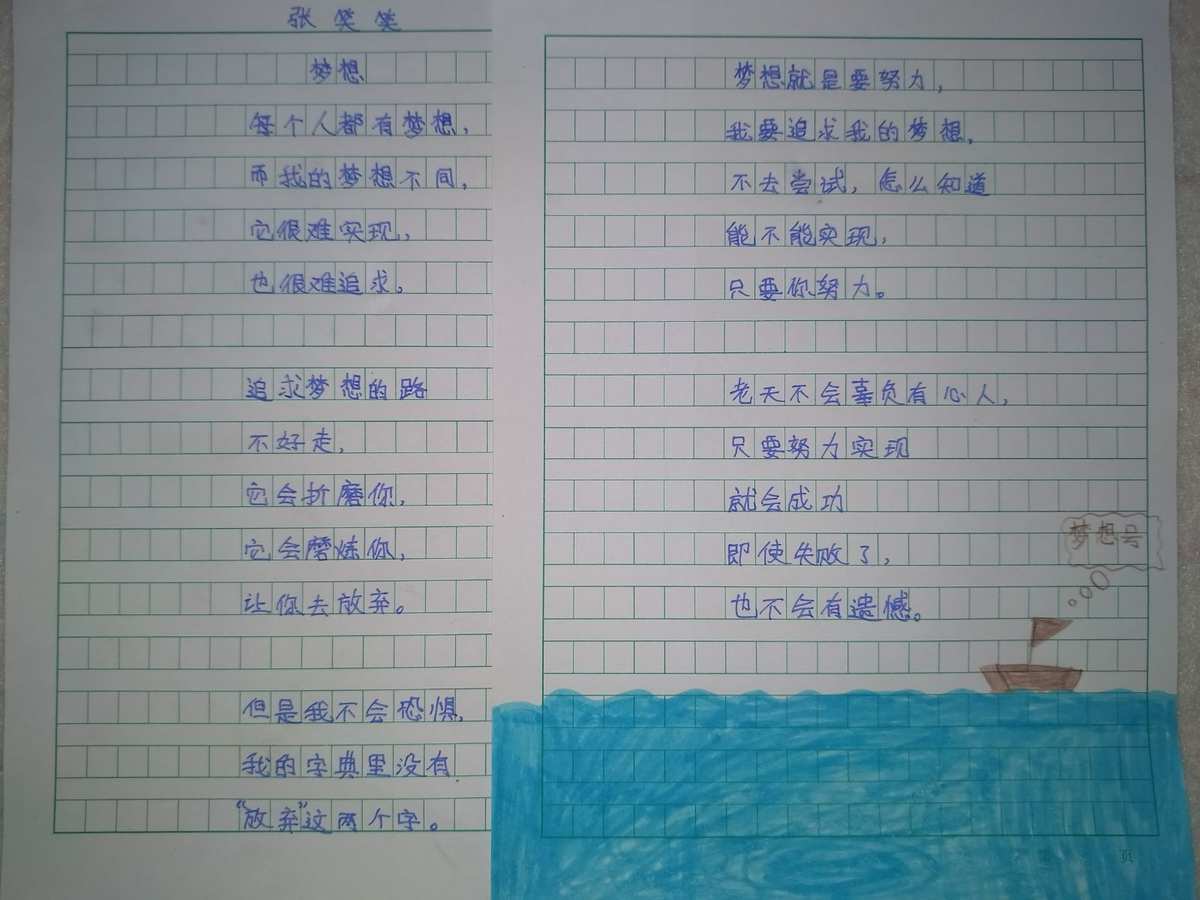 张笑笑
梦想
每个人都有梦想，
而我的梦想不同，
它很难实现，
也很难追求。
追求梦想的路
不好走，
它会折磨你，
它会磨炼你，
让你去放弃。
但是我不会恐惧，
我的字典里没有
“放弃”这两个字。
梦想就是要努力，
我要追求我的梦想，
不去尝试，怎么知道
能不能实现，
只要你努力。
老天不会辜负有心人，
只要努力实现
就会成功
即使失败了，
也不会有遗憾。
梦想号
第 页